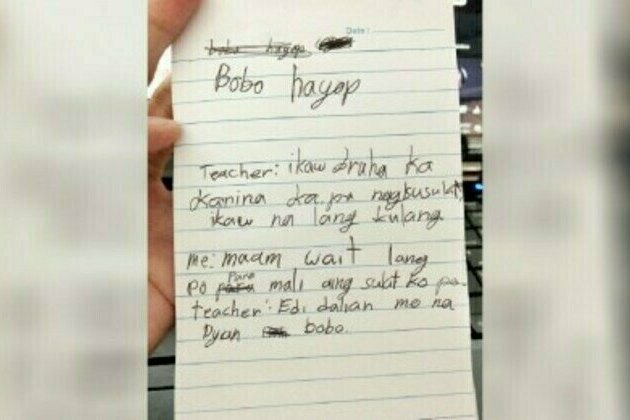 Date:
bobo hayop
Bobo hayop
Teacher: ikaw bruha ka
kanina ka pa nagsusulat
ikaw na lang kulang
me: maam wait lang
po Para mali ang sulat ko po.
teacher: Edi dalian mo na
Dyan bobo.